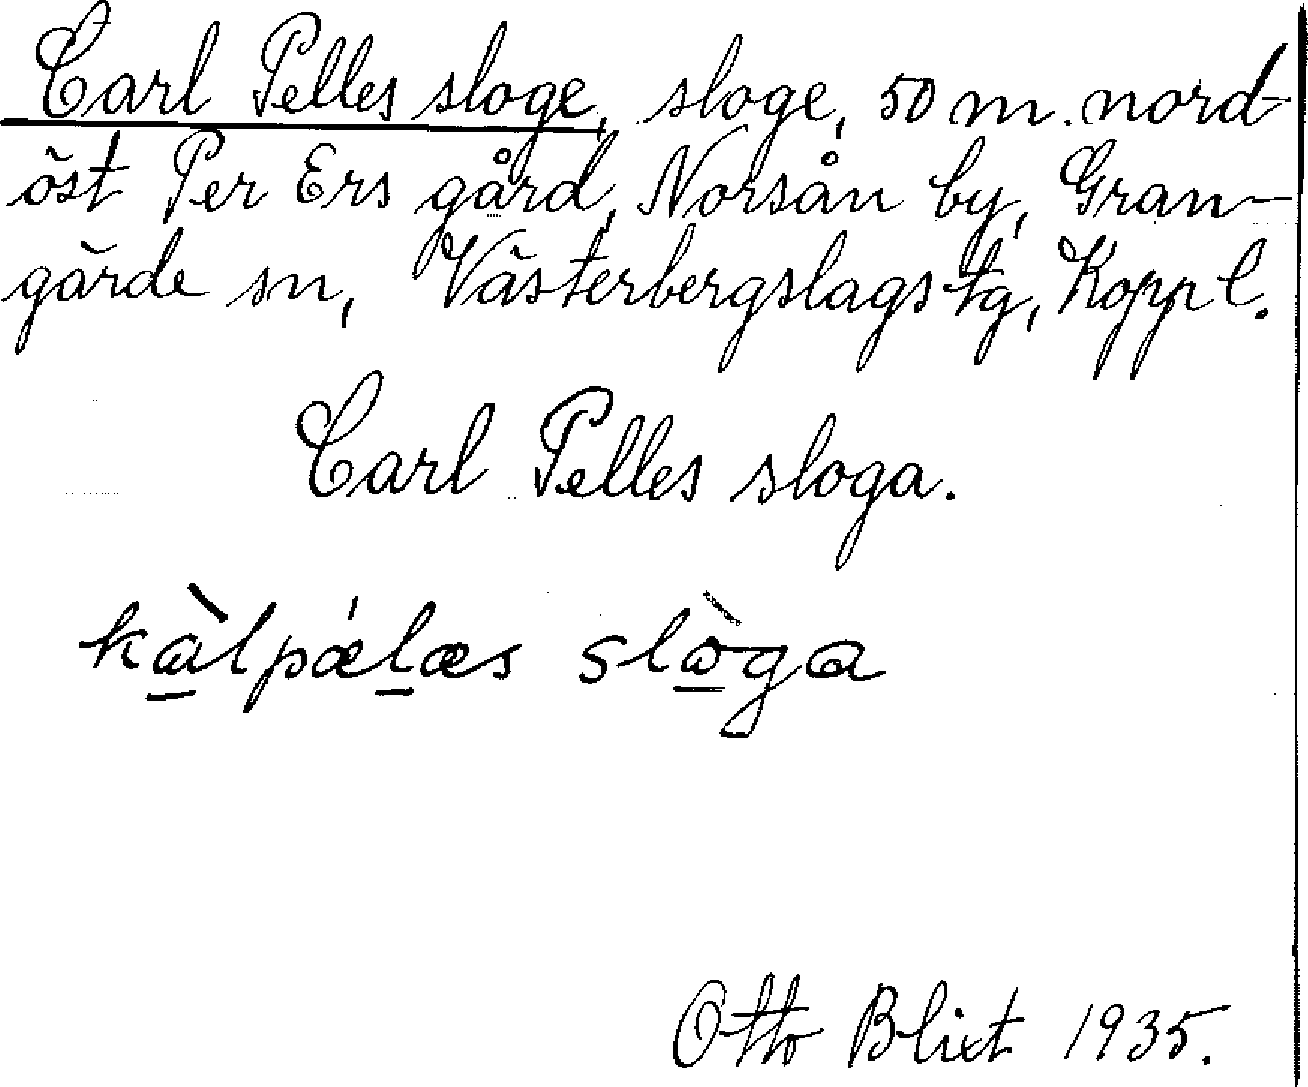 Carl Pelles sloge, sloge, 50 m. nord-
öst Per Ers gård, Norsån by, Gran-
gärde sn, Västerbergslags tg, Kopp l.
Carl Pelles sloga.
kàlpǽlæs slòga
Otto Blixt 1935.